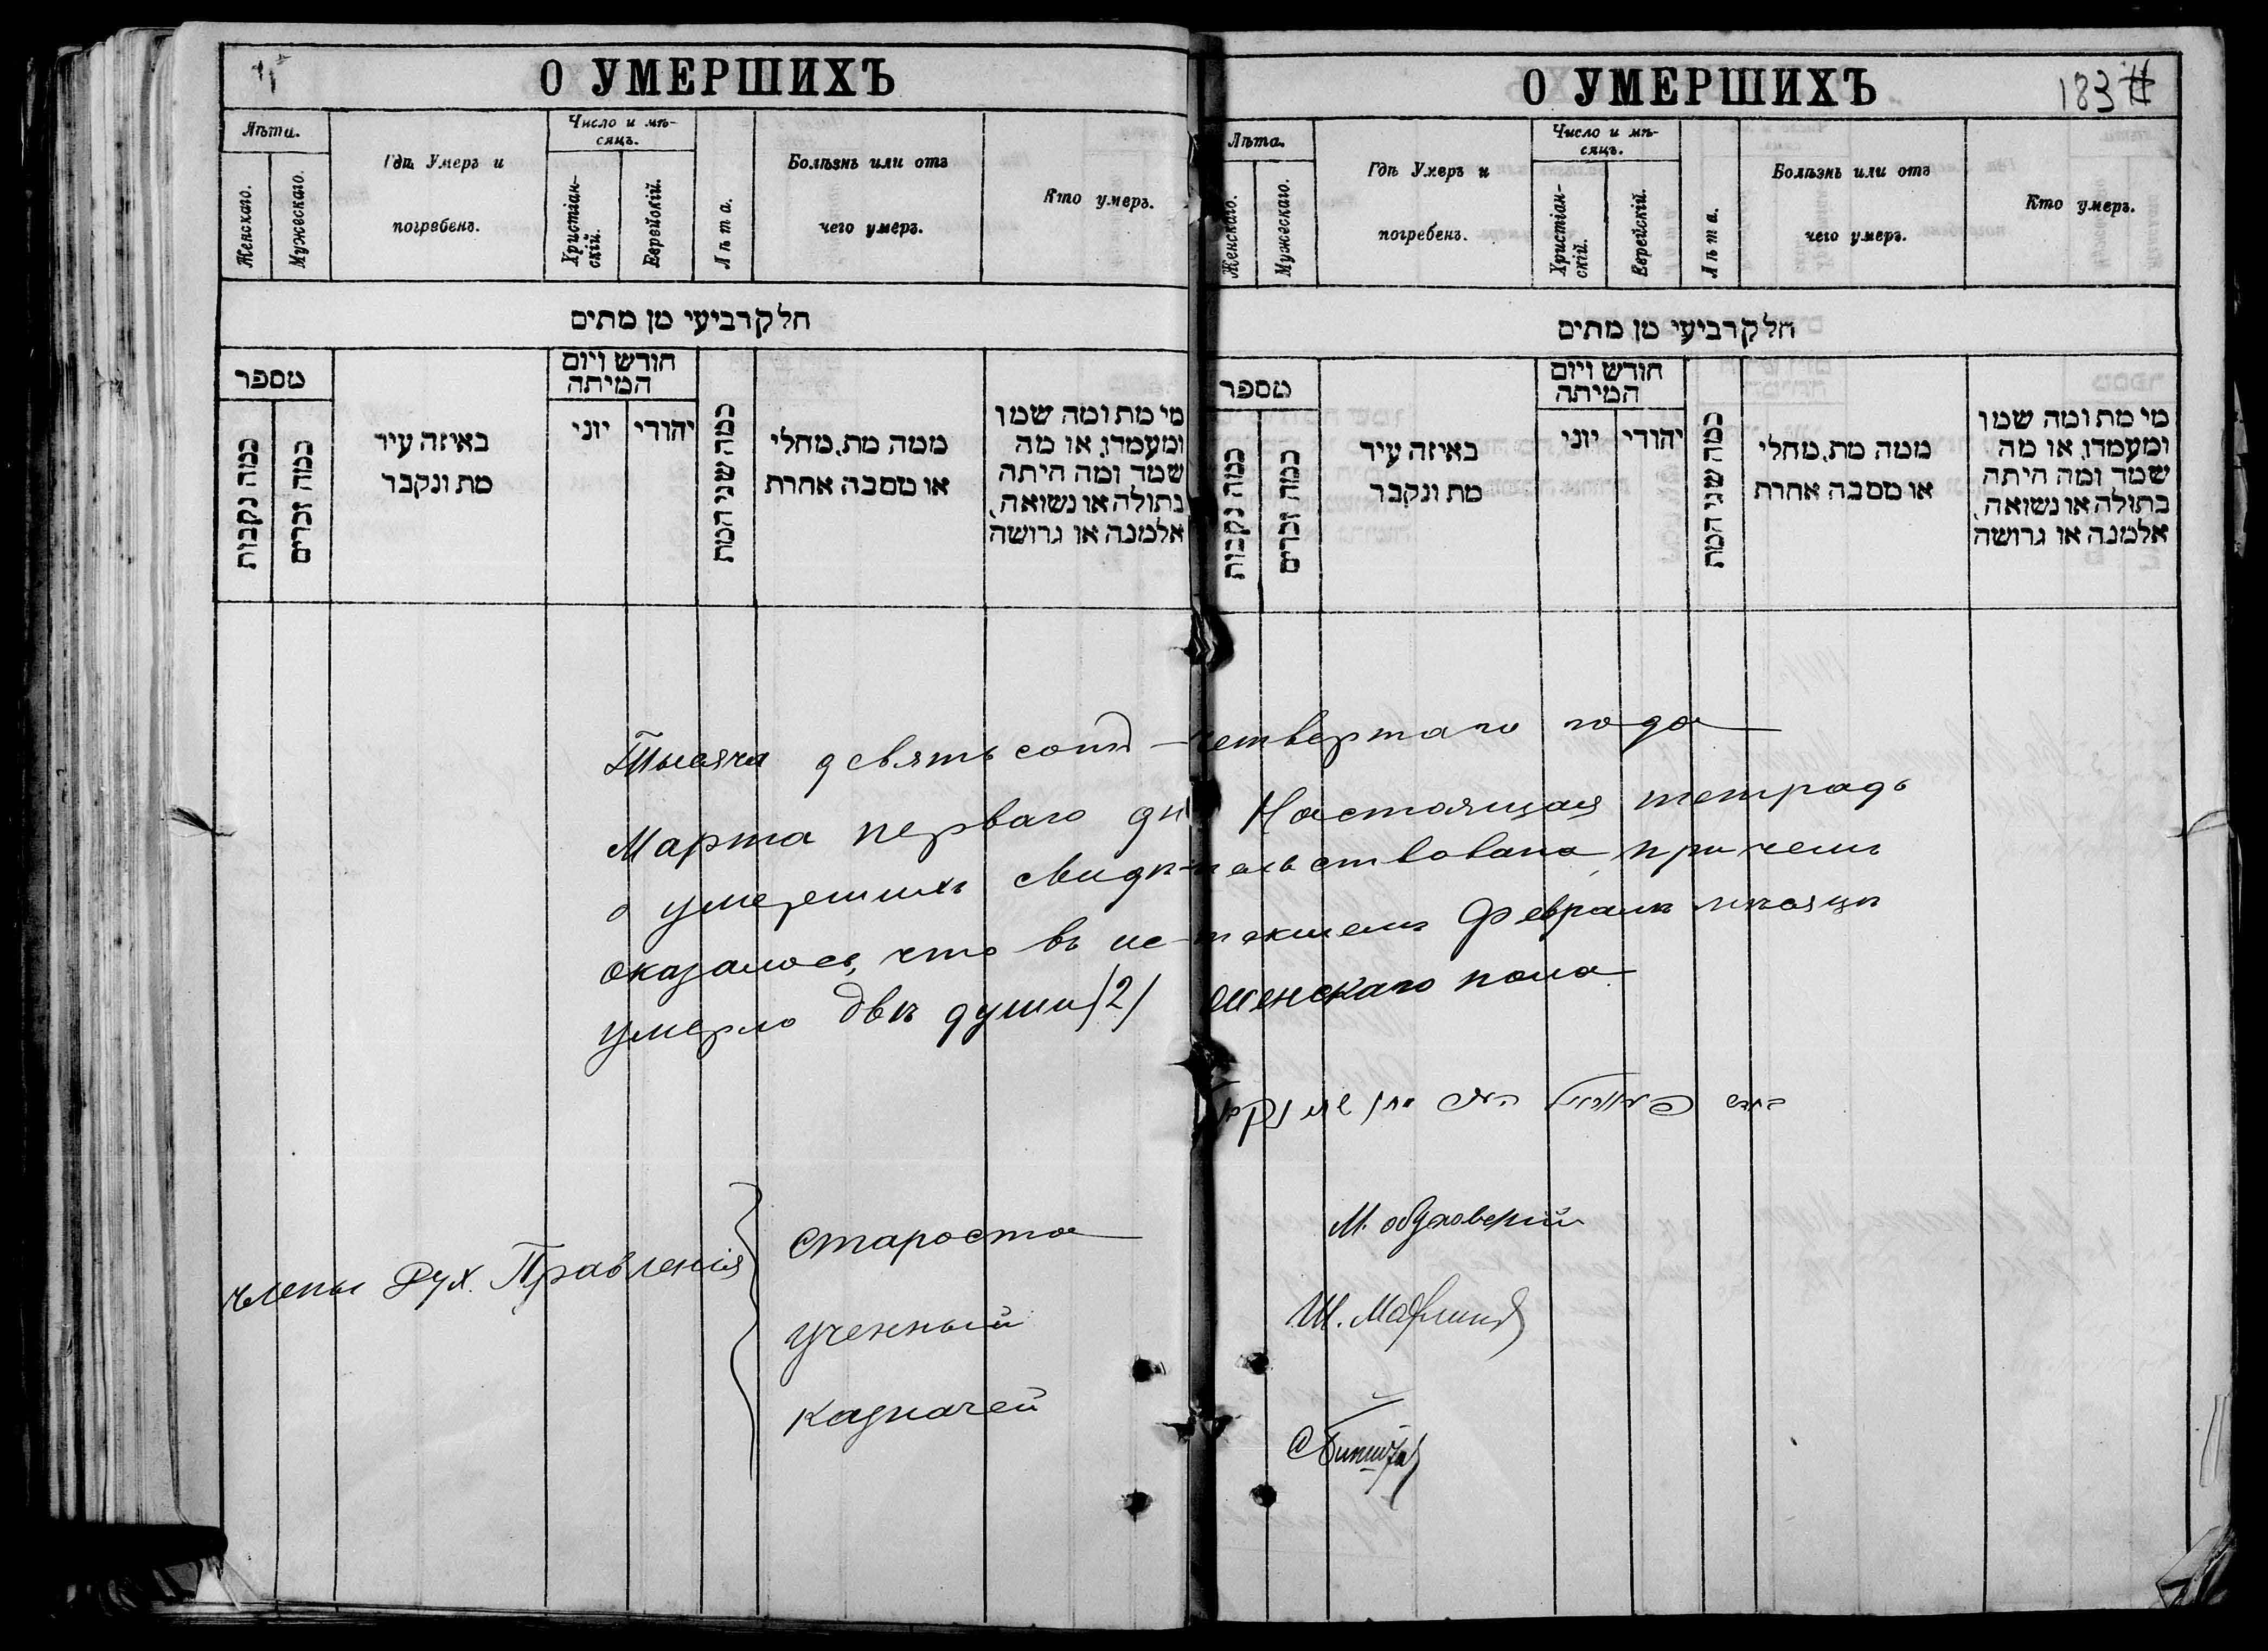 О УМЕРШИХЪ
Лѣта.
Женскаго.
Мужескаго.
Гдѣ Умеръ и
погребенъ.
Число и мѣ-
сяцъ.
Христіан-
скій.
Еврейскій.
Лѣта.
Болѣзнь или отъ
чего умеръ.
Кто умеръ.
חלק רביעי מן מתים
מספר
כמה נקבות
כמה זכרים
באיזה עיר
מת ונקבר
חודש ויום
המיתה
יוני
יהודי
כמה שני המת
ממה מת, מחלי
או מסבה אחרת
מי מת ומה שמו
ומעמדו, או מה
שמד ומה היתה
בתולה או נשואה,
אלמנה או גרושה
О УМЕРШИХЪ
183
Лѣта.
Женскаго.
Мужескаго.
Гдѣ Умеръ и
погребенъ.
Число и мѣ-
сяцъ.
Христіан-
скій.
Еврейскій.
Лѣта.
Болѣзнь или отъ
чего умеръ.
Кто умеръ.
חלק רביעי מן מתים
מספר
כמה נקבות
כמה זכרים
באיזה עיר
מת ונקבר
חודש ויום
המיתה
יוני
יהודי
כמה שני המת
ממה מת, מחלי
או מסבה אחרת
מי מת ומה שמו
ומעמדו, או מה
שמד ומה היתה
בתולה או נשואה,
אלמנה או גרושה
Тысяча девятьсотъ четвертаго года
Марта перваго дня Настоящая тетрадь
о умершихъ свидѣтельствована, причемъ
оказалось, что въ истекшемъ Февралѣ мѣсяцѣ
умерло двѣ души /2/ женскаго пола
члены Дух. Правленія
Староста
Ученный
Казначей
М.
Ш.